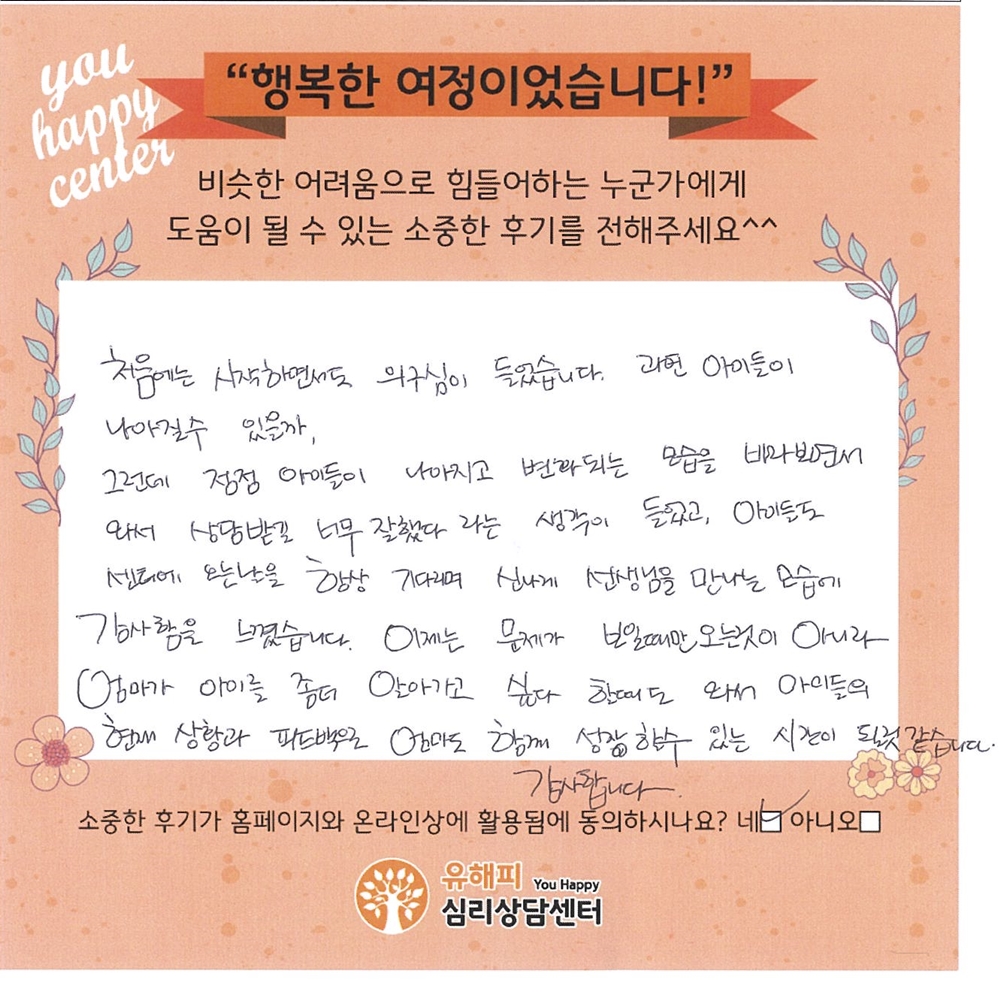 you
happy
center
“행복한 여정이었습니다!”
비슷한 어려움으로 힘들어하는 누군가에게
도움이 될 수 있는 소중한 후기를 전해주세요^^
처음에는 시작하면서도 의구심이 들었습니다. 과연 아이들이
나아질수 있을까,
그런데 점점 아이들이 나아지고 변화되는 모습을 바라보면서
와서 상담받길 너무 잘했다 라는 생각이 들었고, 아이들도
센터에 오는날을 항상 기다리며 신나게 선생님을 만나는 모습에
감사함을 느꼈습니다. 이제는 문제가 보일때만 오는것이 아니라
엄마가 아이를 좀더 알아가고 싶다 할때도 와서 아이들의
현재 상황과 피드백으로 엄마도 함께 성장할수 있는 시간이 될것 같습니다.
감사합니다.
소중한 후기가 홈페이지와 온라인상에 활용됨에 동의하시나요? 네☑ 아니오□
유해피 You Happy
심리상담센터